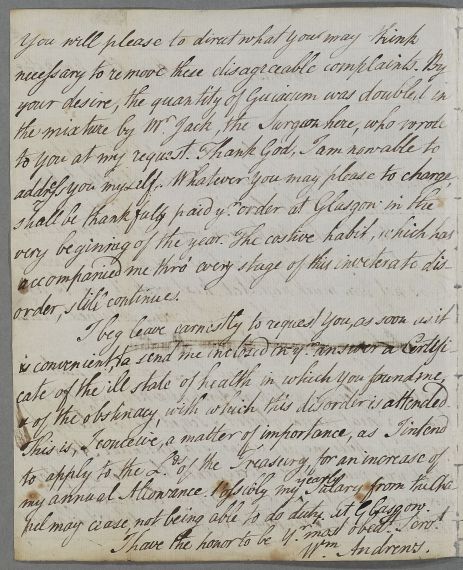 You will please to direct what you may think
necessary to remove these disagreeable complaints. By
your desire, the quantity of Guiacum was doubled in
the mixture by Mr Jack, the Surgeon here, who wrote
to you at my request. Thank God, I am now able to
address you myself. Whatever you may please to charge,
shall be thankfully paid yr. order at Glasgow in the
very beginning of the year. The costive habit, which has
accompanied me thro' every stage of this inveterate dis-
order, still continues.
I beg leave earnestly to request You, as soon as it
is convenient, to send me inclosed in yr. answer a Certifi-
cate of the ill state of health in which You found me,
& of the obstinacy with which this disorder is attended
This is, I conceive, a matter of importance, as I intend
to apply to the Lds. of the Treasury for an increase of
my annual Allowance. Possibly my yearly Salary from the Cha
pel may cease, not being able to do duty at Glasgow.
I have the honor to be Yr. most obedt. Servt
Wm Andrews.